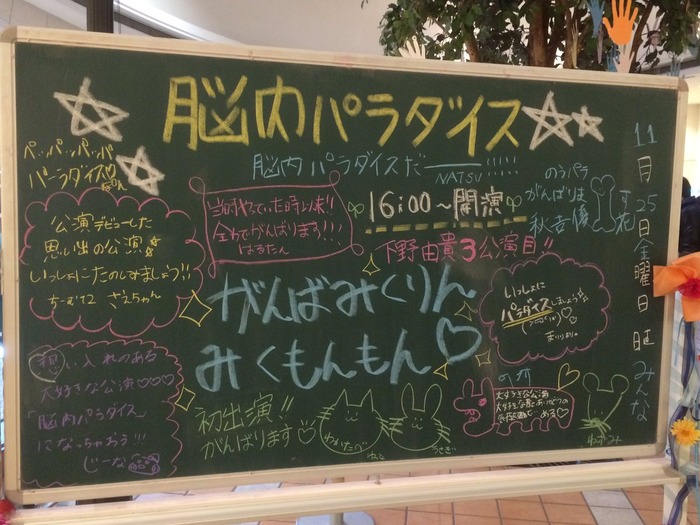 脳内パラダイス
脳内パラダイスだー!!!!!
NATSU
ペッパッパッパッパ
パーラダイス♡
16:00〜開演
下野由貴3公演目!!
のうパラ
がんばりま
秋吉優花
11月25日金曜日
みんな
全力でがんばります!!!
はるたん
公演デビューした
思い出の公演
いっしょにたのしみましょう!!
さえちゃん
がんばみくりん
みくもんもん♡
いっしょに
パラダイスしましょう
まりりより。
想い入れのある
大好きな公演♡♡♡
「脳内パラダイス」
になっちゃおう!!!
じーな
初出演!!
がんばります♡
ねこ
うさぎ
大すきな公演
ねずみ